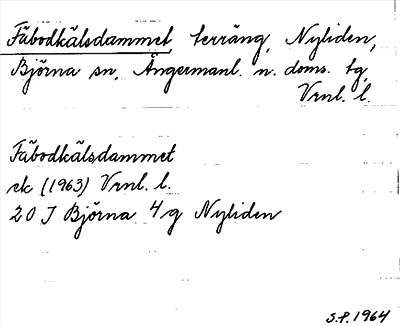 Fäbodkälsdammet, terräng, Nyliden,
Björna sn, Ångermanl. n. doms. tg,
Vrnl. l.
Fäbodkälsdammet
ek (1963) Vrnl. l.
20 J Björna 4g Nyliden
S.P. 1964